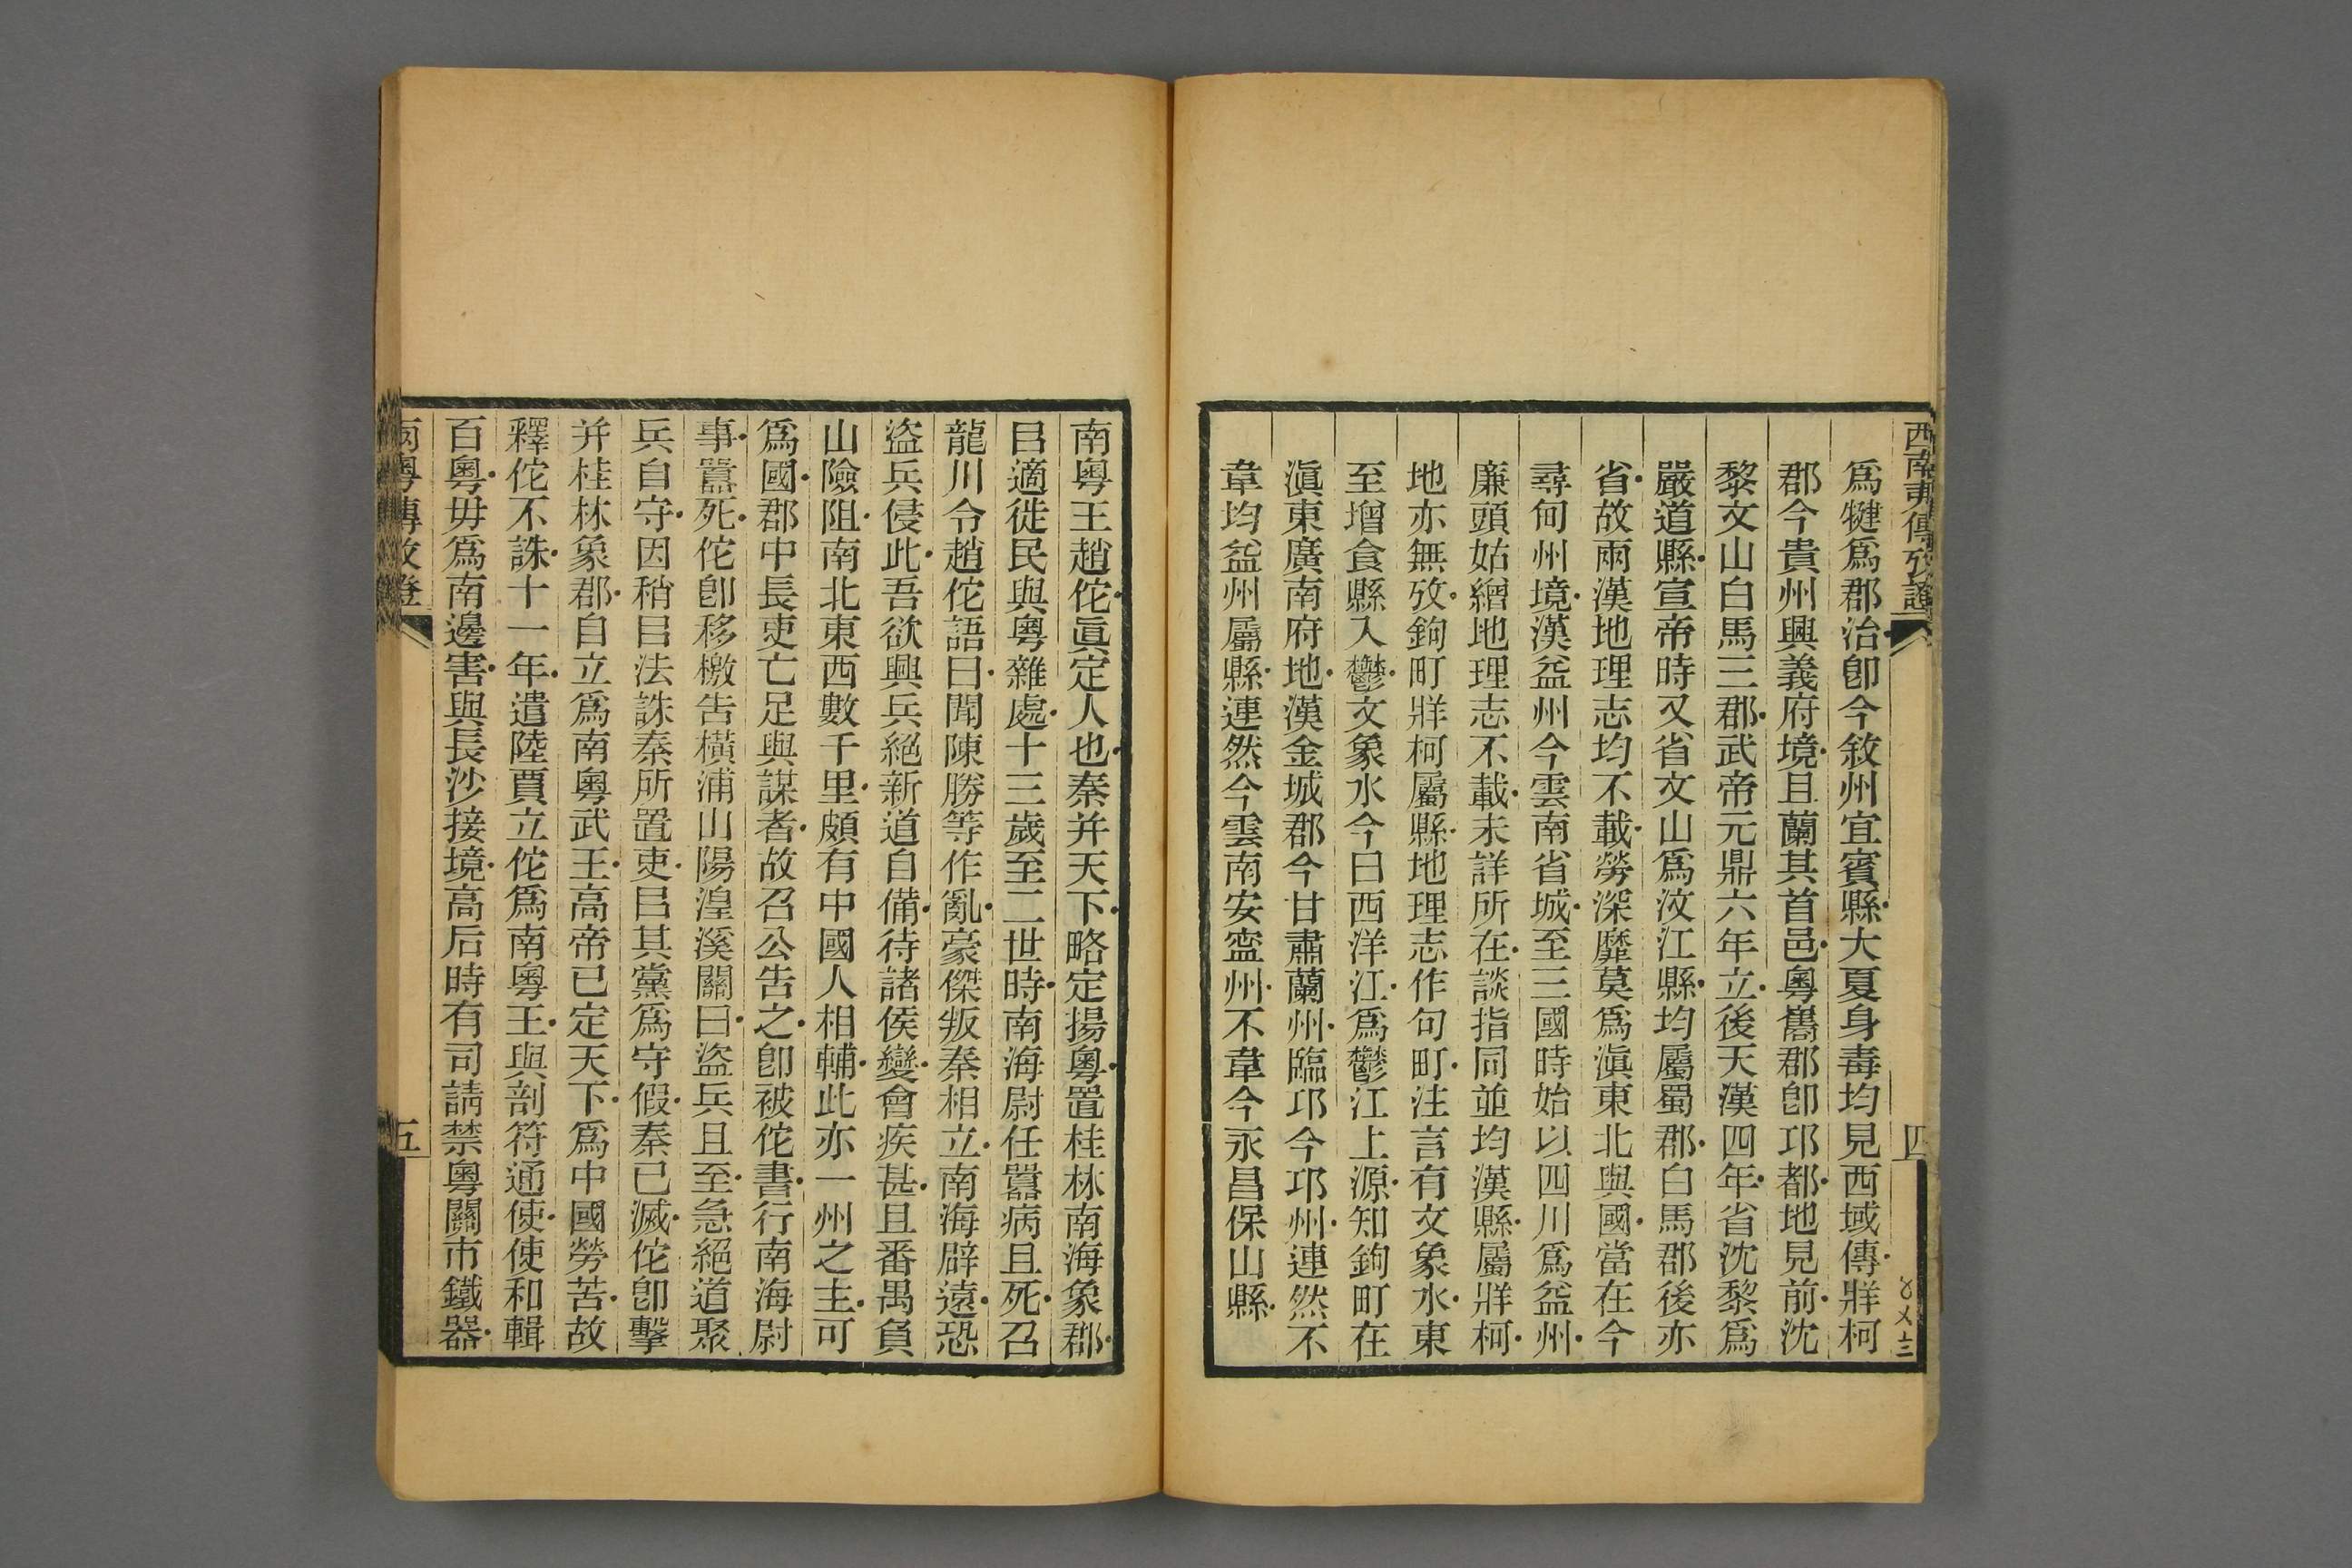 西南夷傳攷證
四
爲犍爲郡治卽今敘州宜賓縣大夏身毒均見西域傳牂柯
郡今貴州興義府境且蘭其首邑粵巂郡卽邛都地見前沈
黎文山白馬三郡武帝元鼎六年立後天漢四年省沈黎爲
嚴道縣宣帝時又省文山爲汶江縣均屬蜀郡白馬郡後亦
省故兩漢地理志均不載勞深靡莫爲滇東北與國當在今
尋甸州境漢益州今雲南省城至三國時始以四川爲益州
廉頭姑繒地理志不載未詳所在談指同並均漢縣屬牂柯
地亦無攷鉤町牂柯屬縣地理志作句町注言有文象水東
至增食縣入鬱文象水今曰西洋江爲鬱江上源知鉤町在
滇東廣南府地漢金城郡今甘肅蘭州臨邛今邛州連然不
韋均益州屬縣連然今雲南安寍州不韋今永昌保山縣
南粵王趙佗眞定人也秦幷天下略定揚粵置桂林南海象郡
㠯適徙民與粵雜處十三歲至二世時南海尉任囂病且死召
龍川令趙佗語曰聞陳勝等作亂豪傑叛秦相立南海辟遠恐
盜兵侵此吾欲興兵絕新道自備待諸侯變會疾甚且番禺負
山險阻南北東西數千里頗有中國人相輔此亦一州之主可
爲國郡中長吏亡足與謀者故召公告之卽被佗書行南海尉
事囂死佗卽移檄告橫浦山陽湟溪關曰盜兵且至急絕道聚
兵自守因稍㠯法誅秦所置吏㠯其黨爲守假秦已滅佗卽擊
幷桂林象郡自立爲南粵武王高帝已定天下爲中國勞苦故
釋佗不誅十一年遣陸賈立佗爲南粵王與剖符通使使和輯
百粵毋爲南邊害與長沙接境高后時有司請禁粵關市鐵器
兩粵傳攷證
五